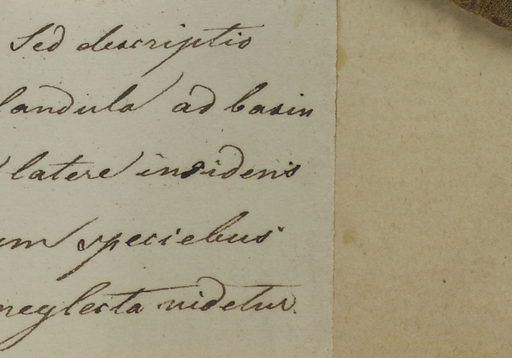 Sed descriptio
landula ad basin
latere insidens
um speciebus
neglecta videtur.